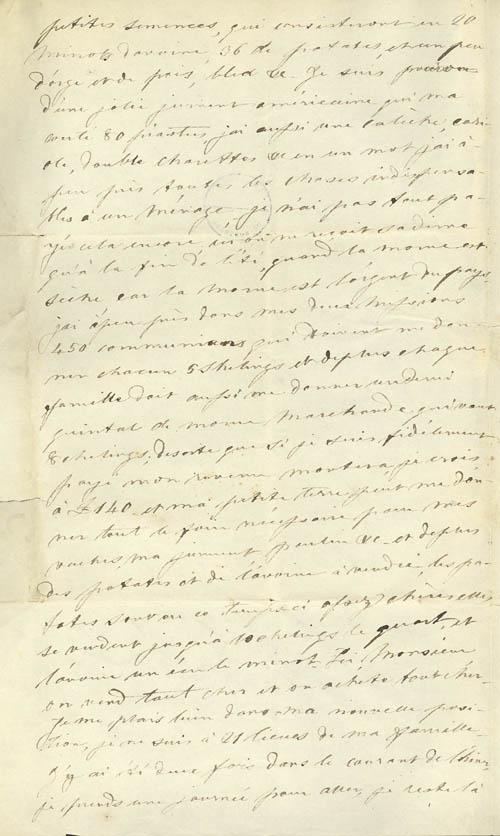 petites semences, qui consisteront en 20
minots d'avoine, 36 de patates, et un peu
d'orge et de pois, bled &c. Je suis pourvu
d'une jolie jument américaine qui m'a
couté 80 piastres, j'ai aussi une caleche, cari-
ole, double charettes &c en un mot j'ai à-
peu près toutes les choses indispensa-
bles à un ménage, je n'ai pas tout pa-
yé cela encore, ici on ne reçoit sa dime
qu'à la fin de l'été, quand la morue est
sèche car la morue est l'argent du pays,
j'ai àpeu près dans mes deux Missions
450 communians, qui doivent me don-
ner chacun 5 Shelings et deplus chaque
famille doit aussi me donner un demi
quintal de morue Marchande qui vaut
8 chelings, desorte que si je suis fidèlement
payé mon revenu montera, je crois
à £140 et ma petite terre peut me don-
ner tout le foin nécessaire pour mes
vaches, ma jument poulin &c et deplus
des patates et de l'avoine à vendre, les pa-
tates sont en ce temps ci assez chères, elles
se vendent jusqu'à 10 chelings le quart et
l'avoine un écu le minot. Ici, Monsieur
on vend tout cher et on achete tout cher-
Je me plais bien dans ma nouvelle posi-
tion, je ne suis à 21 lieues de ma famille
j'y ai été deux fois dans le courant de l'hiver,
je prends une journée pour aller, je reste là